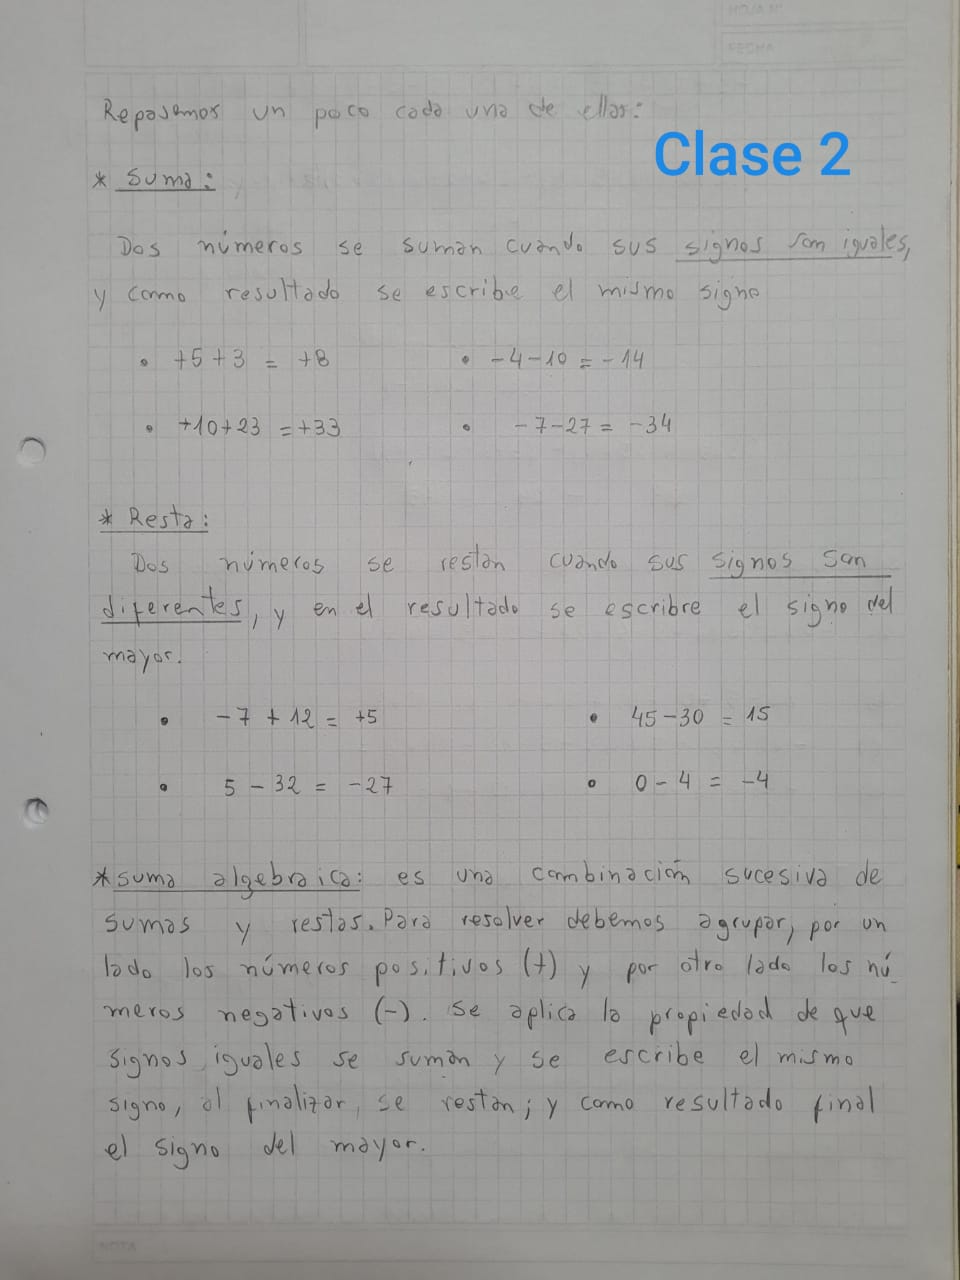 HOJA N°
FECHA
Repasemos un poco cada una de ellas:
Clase 2
* Suma:
Dos números se suman cuando sus signos son iguales,
y como resultado se escribe el mismo signo
• +5+3 = +8 • -4-10 = -14
• +10+23 = +33 • -7-27 = -34
* Resta:
Dos números se restan cuando sus signos son
diferentes, y en el resultado se escribre el signo del
mayor.
• -7 + 12 = +5 • 45-30 = 15
• 5 - 32 = -27 • 0-4 = -4
* suma algebraica: es una combinación sucesiva de
sumas y restas. Para resolver debemos agrupar, por un
lado los números positivos (+) y por otro lado los nú
meros negativos (-). Se aplica la propiedad de que
signos iguales se suman y se escribe el mismo
signo, al finalizar, se restan; y como resultado final
el signo del mayor.
NOTA